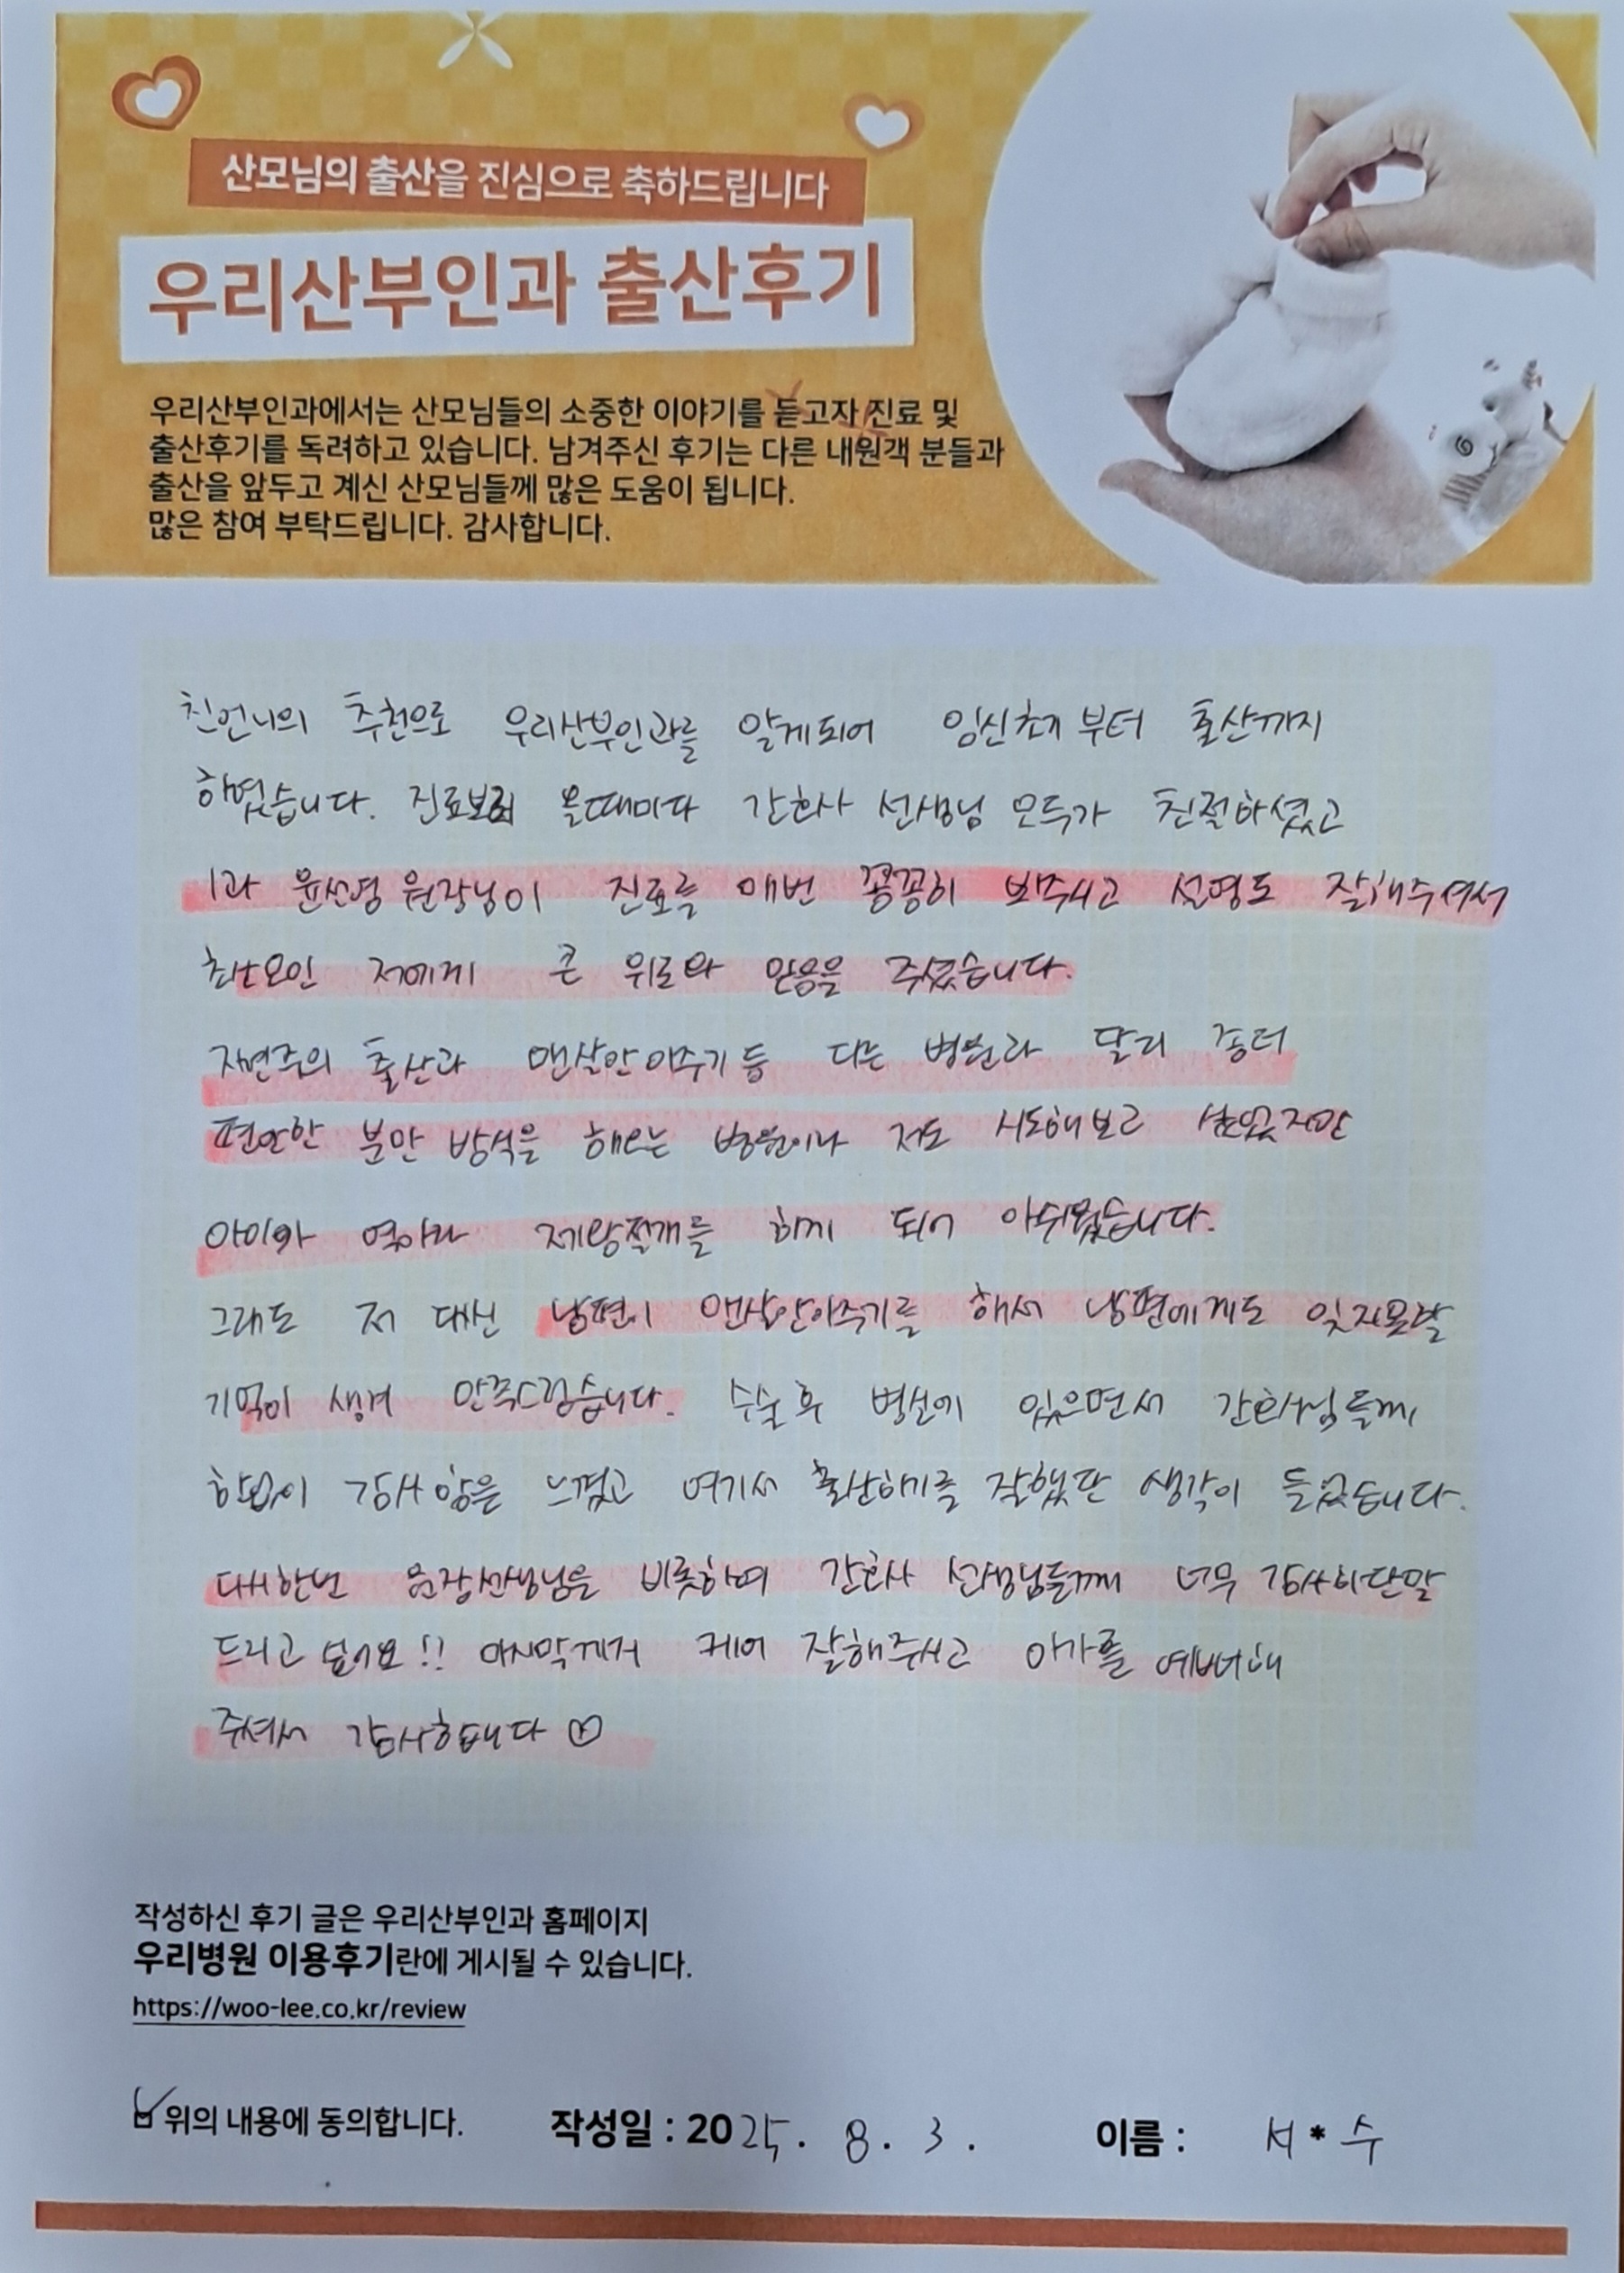 산모님의 출산을 진심으로 축하드립니다
우리산부인과 출산후기
우리산부인과에서는 산모님들의 소중한 이야기를 듣고자 진료 및
출산후기를 독려하고 있습니다. 남겨주신 후기는 다른 내원객 분들과
출산을 앞두고 계신 산모님들께 많은 도움이 됩니다.
많은 참여 부탁드립니다. 감사합니다.
친언니의 추천으로 우리산부인과를 알게되어 임신초기 부터 출산까지
하였습니다. 진료보러 올때마다 간호사 선생님 모두가 친절하셨고
1과 윤선영 원장님이 진료를 매번 꼼꼼히 봐주시고 설명도 잘해주셔서
초산모인 저에게 큰 위로와 믿음을 주셨습니다.
자연주의 출산과 맨살안아주기 등 다른 병원과 달리 좀더
편안한 분만 방식을 해오는 병원이나 저도 시도해보고 싶었지만
아이와 엄마라 제왕절개를 하게 되어 아쉬웠습니다.
그래도 저 대신 남편이 맨살안아주기를 해서 남편에게도 잊지못할
기억이 생겨 만족스럽습니다. 수술 후 병실에 있으면서 간호사님들께
한없이 감사함을 느꼈고 여기서 출산하기를 잘했단 생각이 들었습니다.
다시한번 원장선생님을 비롯하여 간호사 선생님들께 너무 감사하단말
드리고 싶어요!! 마지막까지 케어 잘해주시고 아가를 예뻐해
주셔서 감사합니다 ♡
작성하신 후기 글은 우리산부인과 홈페이지
우리병원 이용후기란에 게시될 수 있습니다.
https://woo-lee.co.kr/review
위의 내용에 동의합니다. 작성일 : 2025. 8. 3. 이름 : 서*수